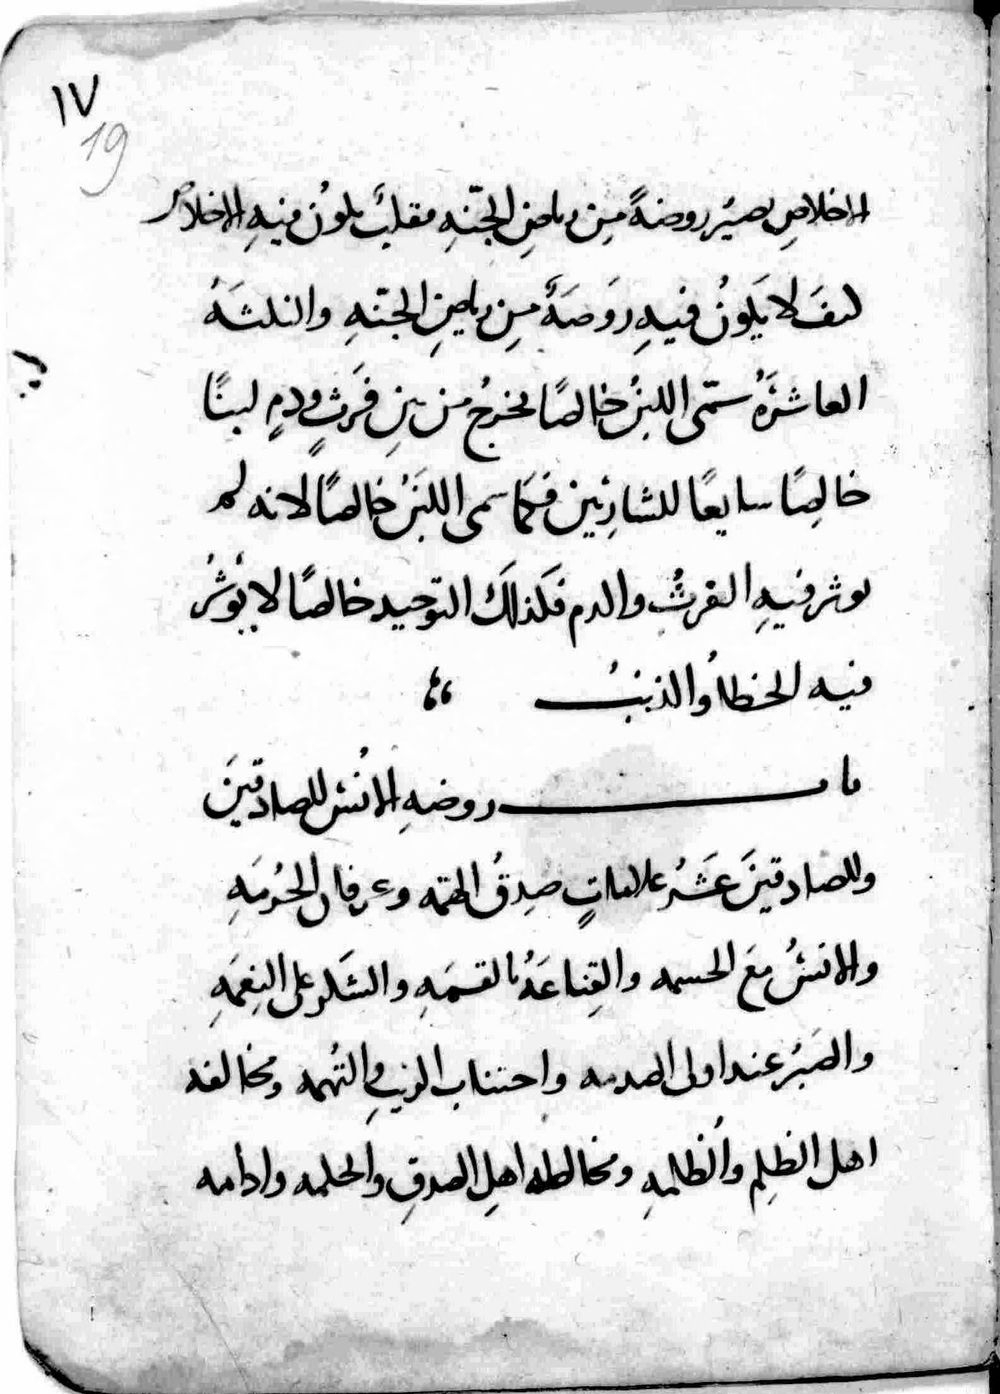 ١٧
19
الاخلاص يصير روضةً مِن رياضِ الجنّهِ فقلبٌ يكونُ فيهِ الاخلاص
كيفَ لا يَكونُ فيهِ رَوضَةٌ مِن رياضِ الجنّهِ والنكتهُ
العاشرَهُ سمّى اللبنُ خالصًا يخرجُ من بينِ فَرثٍ ودمٍ لبنًا
خالِصًا سايغًا للشارِبين فكما سمى اللبَنُ خالصًا لانه لم
يوثر فيهِ الفرثُ والدم فكذلكَ التوحيد خالصًا لا يُوثرُ
فيه الخطاُ والذنبُ
باب روضهِ الانُسِ للصادقينَ
وللصادقينَ عَشرُ علاماتٍ صِدقُ الهمّه وعرفان الحُرمَهِ
والانسُ معَ الحسمه والقِناعَهُ بالقسمَهِ والشكر على النِعمَهِ
والصَبرُ عند اولى الصدمه واجتناب الريبِ والتُهمه ومخالفه
اهل الظلِم والظالمهِ ومخالطه اهلِ الصدقِ والحلمه وادامه